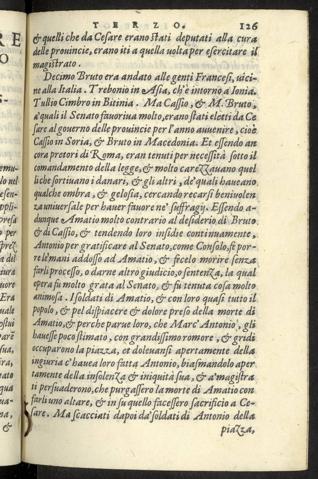 TERZO. 126
& quelli che da Cesare erano stati deputati alla cura
delle prouincie, erano iti a quella uolta per esercitare il
magistrato.
Decimo Bruto era andato alle genti Francesi, uici-
ne alla Italia. Trebonio in Asia, ch'è intorno a Ionia.
Tullio Cimbro in Bitinia. Ma Cassio, & M. Bruto,
a' quali il Senato fauoriua molto, erano stati eletti da Ce
sare al gouerno delle prouincie per l'anno auuenire, cioè
Cassio in Soria, & Bruto in Macedonia. Et essendo an
cora pretori di Roma, eran tenuti per necessità sotto il
commandamento della legge, & molto carezzauano quel
li che sortiuano i danari, & gli altri, de' quali haueano
qualche ombra, & gelosia, cercando recarsi beniuolen
za uniuersale per hauer fauore ne' suffragij. Essendo a-
dunque Amatio molto contrario al desiderio di Bruto
& di Cassio, & tendendo loro insidie continuamente,
Antonio per gratificare al Senato, come Consolo, fè por-
re le mani addosso ad Amatio, & fecelo morire senza
farli processo, o darne altro giudicio, o sentenza, la qual
opera fu molto grata al Senato, & fu tenuta cosa molto
animosa. I soldati di Amatio, & con loro quasi tutto il
popolo, & pel dispiacere & dolore preso della morte di
Amatio, & perche parue loro, che Marc' Antonio, gli
hauesse poco stimato, con grandissimo romore, & gridi
occuparono la piazza, et doleuansi apertamente della
ingiuria c'hauea loro fatta Antonio, biasmandolo aper
tamente della insolenza & iniquità sua, & a' magistra
ti persuaderono, che purgassero la morte di Amatio con
farli uno altare, & in su quello facessero sacrificio a Ce-
sare. Ma scacciati dapoi da' soldati di Antonio della
piazza,